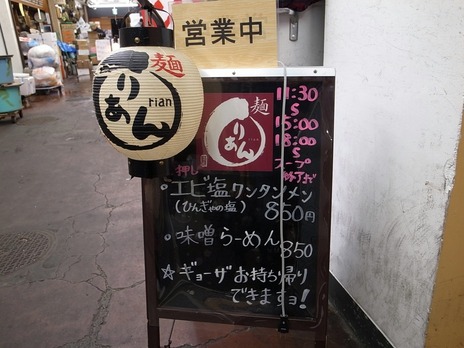 営業中
麺
りあん
rian
麺
りあん
11:30
S
15:00
18:00
S
スープ
終了まで
押し
・エビ塩ワンタンメン
(ひんぎゃの塩) 850円
・味噌らーめん 850
☆ギョーザお持ち帰り
できますョ!